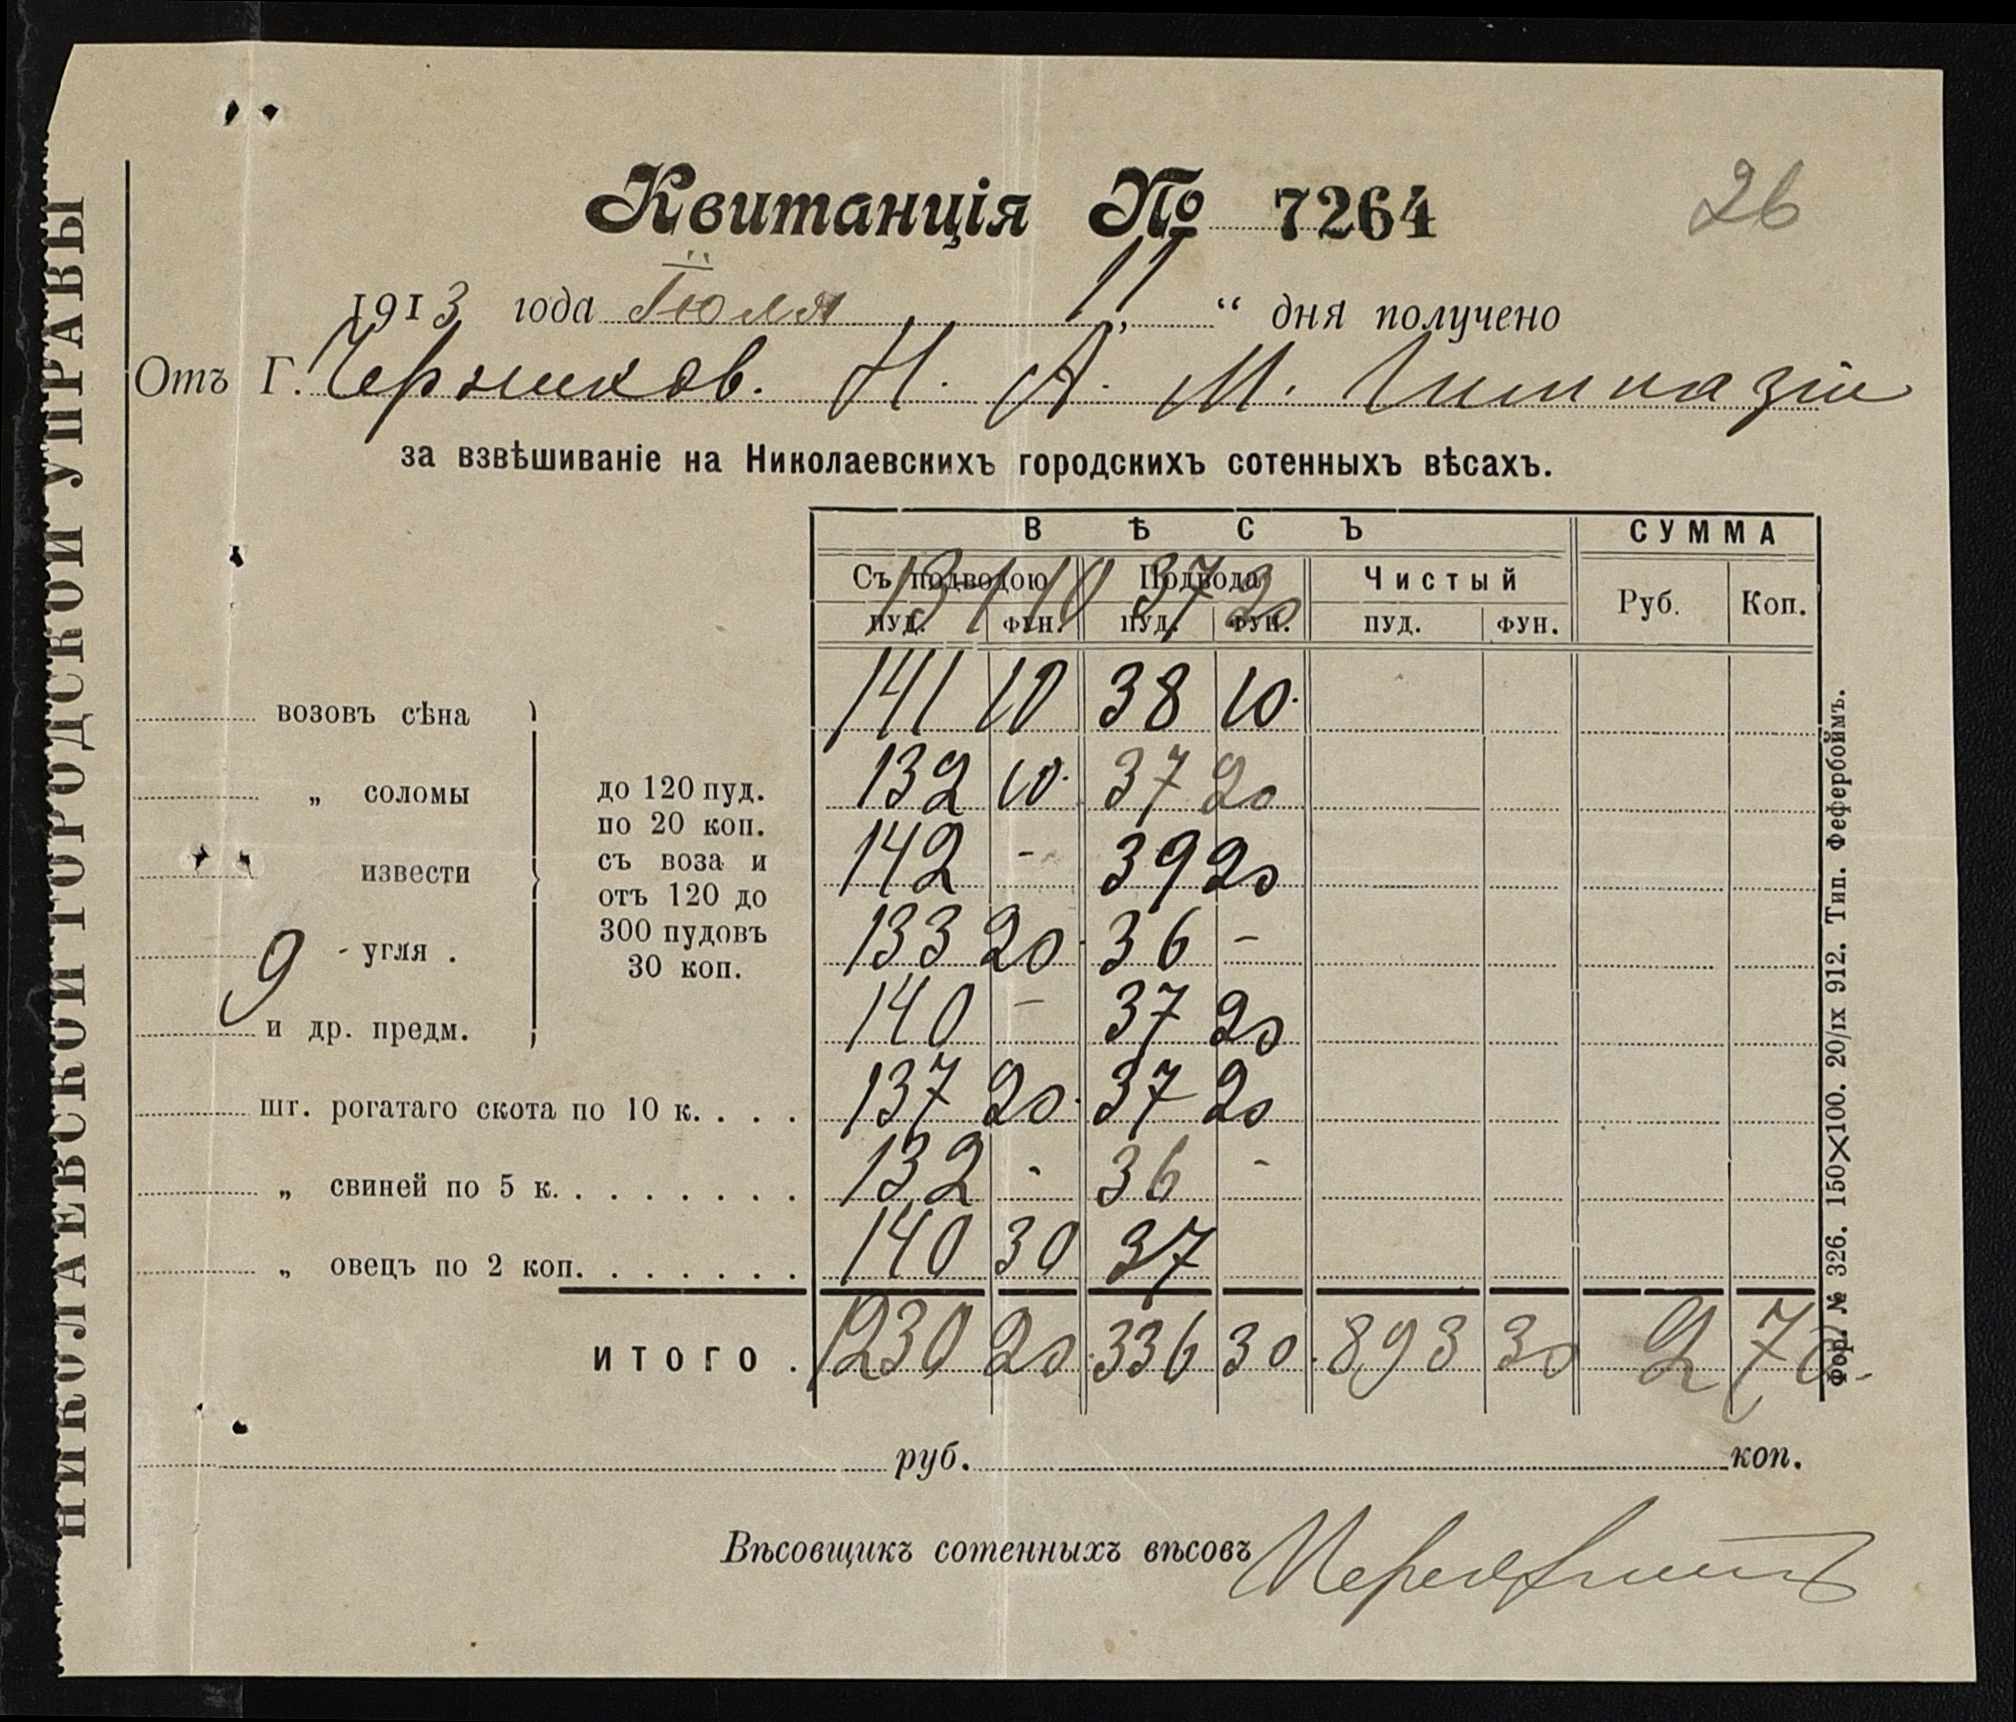 НИКОЛАЕВСКОЙ ГОРОДСКОЙ УПРАВЫ
Квитанція № 7264
26
1913 года Іюля 11 „ “ дня получено
Отъ Г. Черников. Н. А. М. Гимназіи
за взвѣшиваніе на Николаевскихъ городскихъ сотенныхъ вѣсахъ.
ВѢСЪ СУММА
Съ подводою Подвода Чистый Руб. Коп.
пуд. фун. пуд. фун. пуд. фун.
131 10 37 20
возовъ сѣна 141 10 38 10.
„ соломы 132 10. 37 20
извести 142 - 39 20
9 - угля . 133 20. 36 -
и др. предм. 140 - 37 20
до 120 пуд.
по 20 коп.
съ воза и
отъ 120 до
300 пудовъ
30 коп.
шт. рогатаго скота по 10 к. . . . 137 20. 37 20
„ свиней по 5 к. . . . . . . . 132 - 36 -
„ овецъ по 2 коп. . . . . . . 140 30 37
ИТОГО . 1230 20. 336 30. 893 30 2 70
руб. коп.
Вѣсовщикъ сотенныхъ вѣсовъ
Фор. № 326. 150×100. 20/IX 912. Тип. Фефербоймъ.